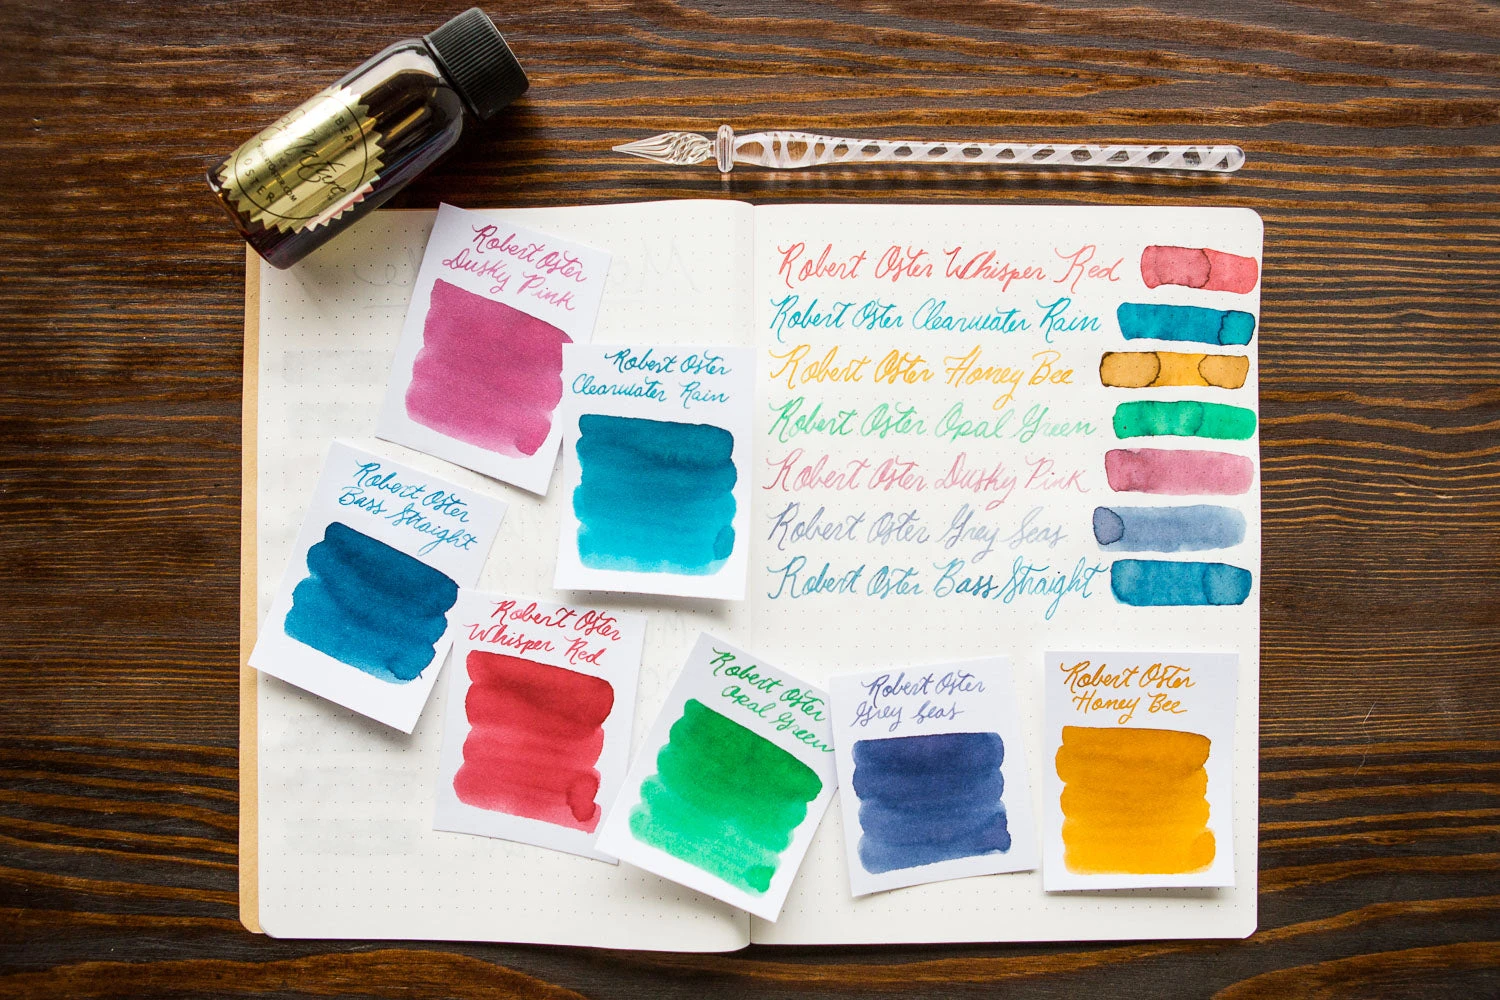 ROBERT
OSTER
Robert Oster
Dusky Pink
Robert Oster
Clearwater Rain
Robert Oster
Bass Straight
Robert Oster
Whisper Red
Robert Oster
Opal Green
Robert Oster
Grey Seas
Robert Oster
Honey Bee
Robert Oster Whisper Red
Robert Oster Clearwater Rain
Robert Oster Honey Bee
Robert Oster Opal Green
Robert Oster Dusky Pink
Robert Oster Grey Seas
Robert Oster Bass Straight